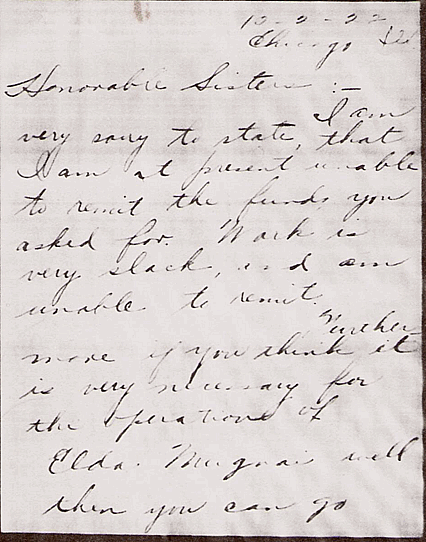 10-2-22
Chicago Ill
Honorable Sisters :-
I am
very sorry to state, that
I am at present unable
to remit the funds you
asked for. Work is
very slack, and am
unable to remit.
Further
more if you think it
is very necessary for
the operations of
Elda Mugnai well
then you can go